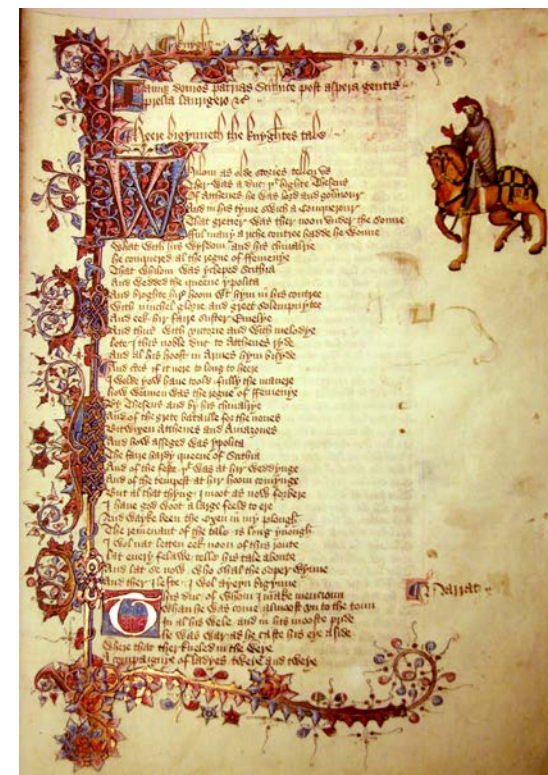 Iamque domos patrias Scithice post aspera gentis
prelia laurigero &c
Heere bigynneth the knyghtes tale
Whilom as olde stories tellen us
Ther was a duc yt highte Theseus
Of Atthenes he was lord and gouernour
And in his tyme swich a Conquerour
That gretter was ther noon under the sonne
fful many a riche contree hadde he wonne
What with his wysdom and his chiualrie
he conquered al the regne of ffemenye
That whilom was ycleped Scithia
And wedded the queene ypolita
And broghte hir hoom wt hym in his contree
With muchel glorie and greet solempnytee
And eek hir faire suster Emelye
And thus with victorie and with melodye
lete I this noble duc to Atthenes ryde
And al his hoost in Armes hym bisyde
And certes if it nere to long to heere
I wolde yow haue toold fully the manere
how wonnen was the regne of ffemenye
By Theseus and by his chiualrye
And of the grete bataille for the nones
Bitwixen Atthenes and Amazones
And how asseged was ypolita
The faire hardy queene of Scithia
And of the feste yt was at hir weddynge
And of the tempest at hir hoom comynge
But al that thyng I moot as now forbere
I haue god woot a large feeld to ere
And wayke been the oxen in my plough
The remenant of the tale is long ynough
I wol nat letten eek noon of this route
lat euery felawe telle his tale aboute
And lat se now who shal the soper wynne
And ther I lefte I wol ayeyn bigynne
This duc of whom I make mencioun
Whan he was come almoost vn to the toun
In al his wele and in his mooste pride
he was war as he caste his eye aside
Where that ther kneled in the weye
A compaignye of ladyes tweye and tweye
Narrat